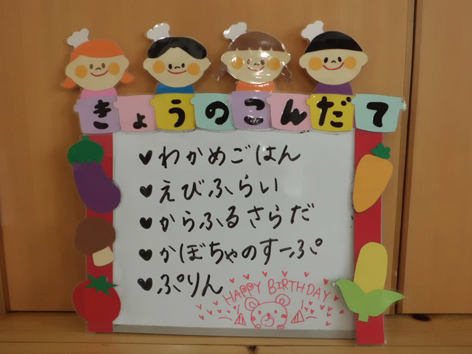 きょうのこんだて
♥わかめごはん
♥えびふらい
♥からふるさらだ
♥かぼちゃのすーぷ
♥ぷりん
HAPPY BIRTHDAY